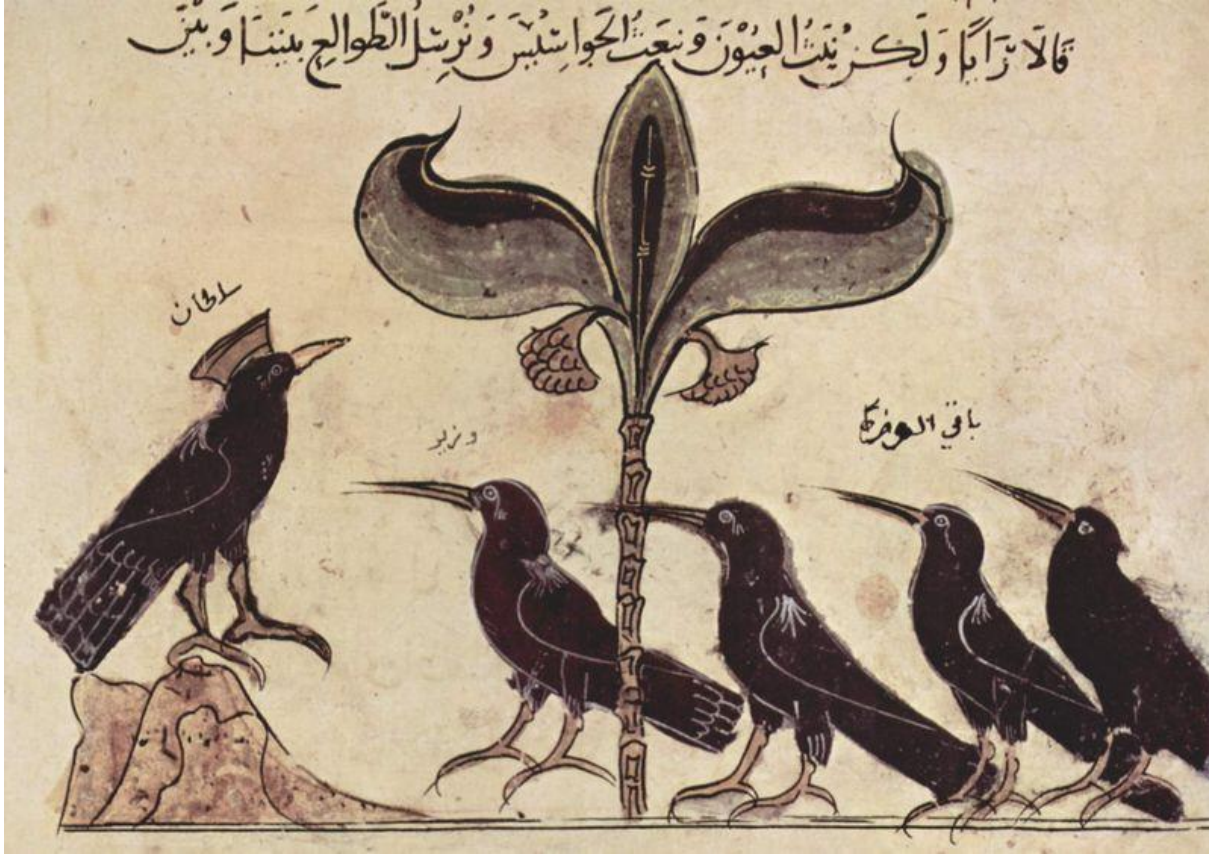 قَالَا رَايًا وَلَكِنْ نَبُثُّ العُيُوْنَ وَنبعَثُ الجَواسِيْسَ وَنُرْسِلُ الطَّوالِعَ بَيْنَنَا وَبَيْنَ
سلطان
وزير
باقي الوزرا